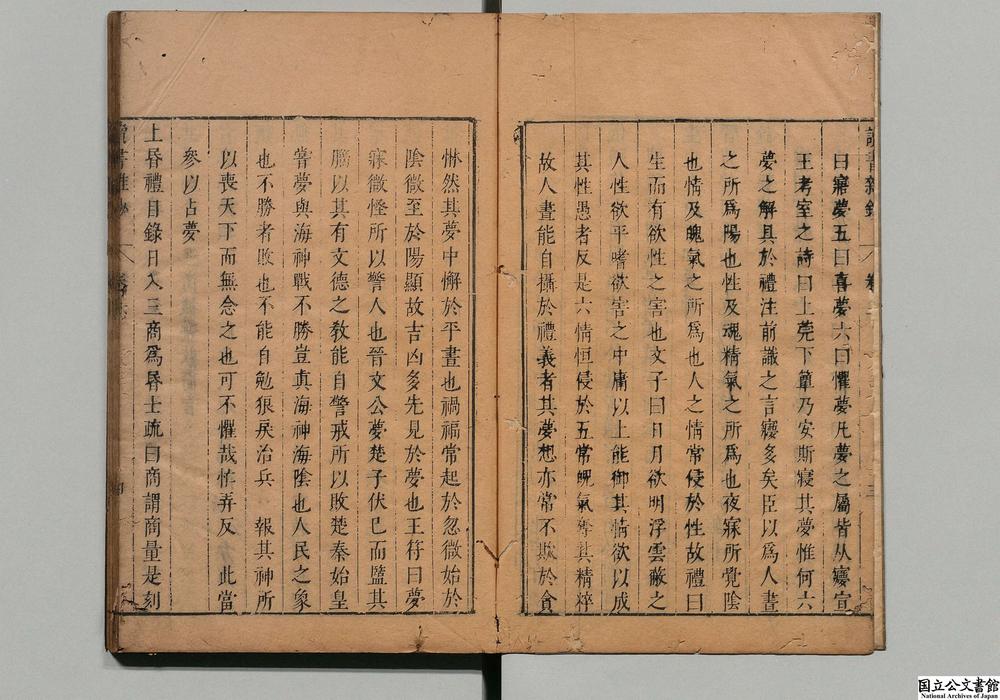 曰寤夢五曰喜夢六曰懼夢凡夢之屬皆从㝱宣
王考室之詩曰上莞下簟乃安斯寢其夢惟何六
夢之解具於禮注前識之言㝱多矣臣以爲人晝
之所爲陽也性及魂精氣之所爲也夜寐所覺陰
也情及魄氣之所爲也人之情常侵於性故禮曰
生而有欲性之害也文子曰日月欲明浮雲蔽之
人性欲平嗜欲害之中庸以上能御其情欲以成
其性愚者反是六情恒侵於五常魄氣奪其精粹
故人晝能自攝於禮義者其夢想亦常不欺於貪
惏然其夢中懈於平晝也禍福常起於忽微始於
陰微至於陽顯故吉凶多先見於夢也王符曰夢
寐徵怪所以警人也晉文公夢楚子伏己而盬其
腦以其有文德之敎能自警戒所以敗楚秦始皇
嘗夢與海神戰不勝豈真海神海陰也人民之象
也不勝者敗也不能自勉狠戾治兵 報其神所
以喪天下而無念之也可不懼哉忙弄反 此當
參以占夢
上昏禮目錄日入三商爲昏士疏曰商謂商量是刻
国立公文書館
National Archives of Japan